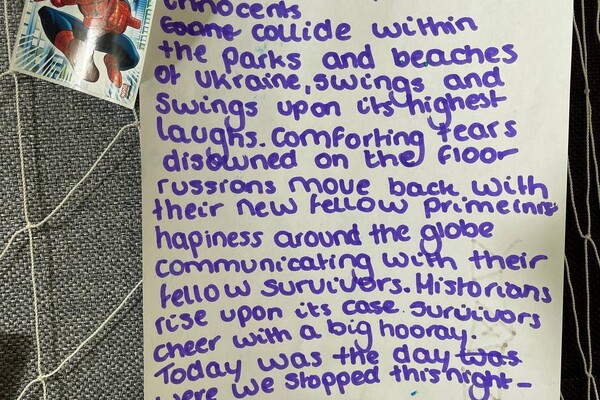 innocents
collide within
the parks and beaches
of ukraine, swings and
swings upon its highest
laughs. comforting tears
disowned on the floor
russians move back with
their new fellow primeinis
hapiness around the globe
communicating with their
fellow survivors. Historians
rise upon its case. survivors
cheer with a big hooray.
Today was the day was
were we stopped this night-